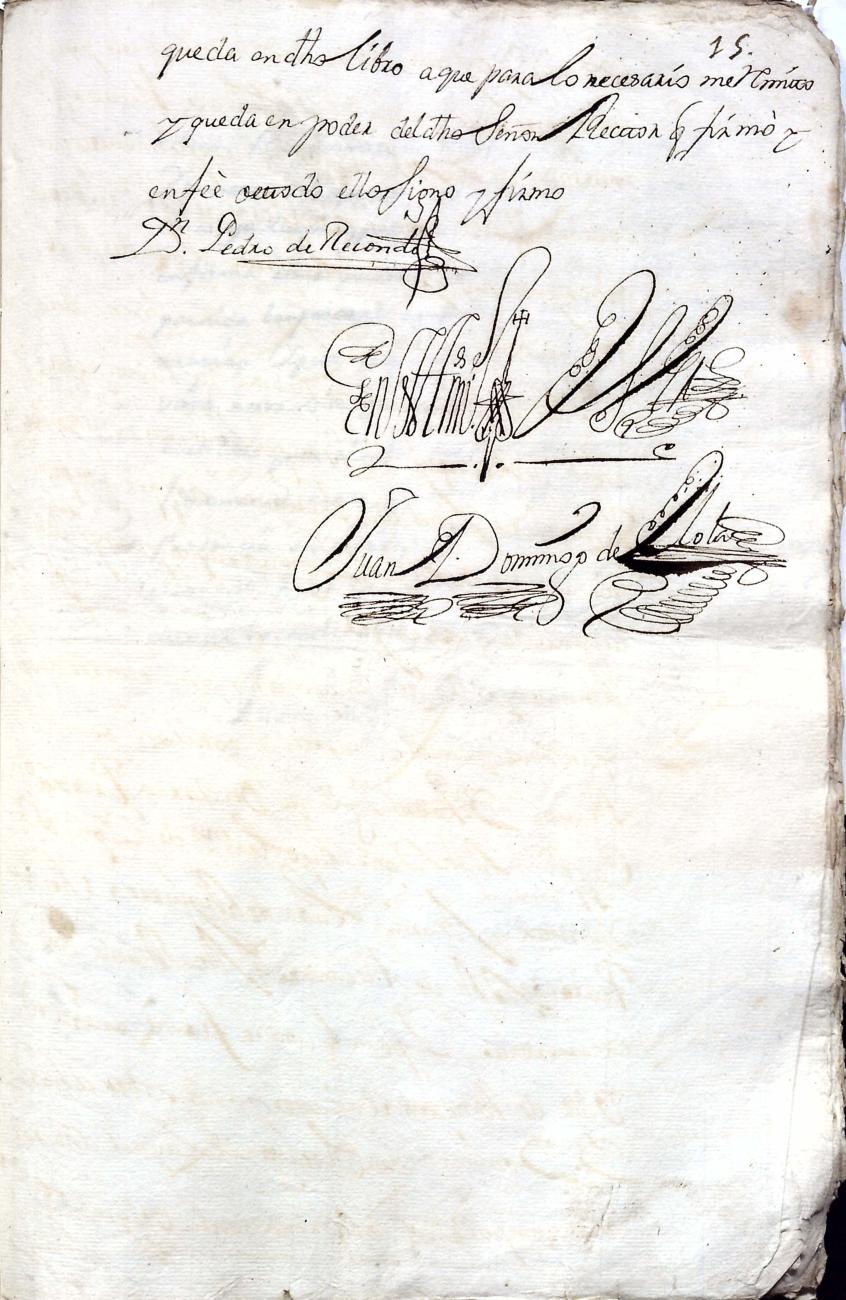 15.
queda en dho libro a que para lo necesario me Remito
y queda en poder del dho Señor Rector q firmò y
en feè de todo ello signo y firmo
Dn. Pedro de Recondo
En testimo de Verd
Juan Domingo de